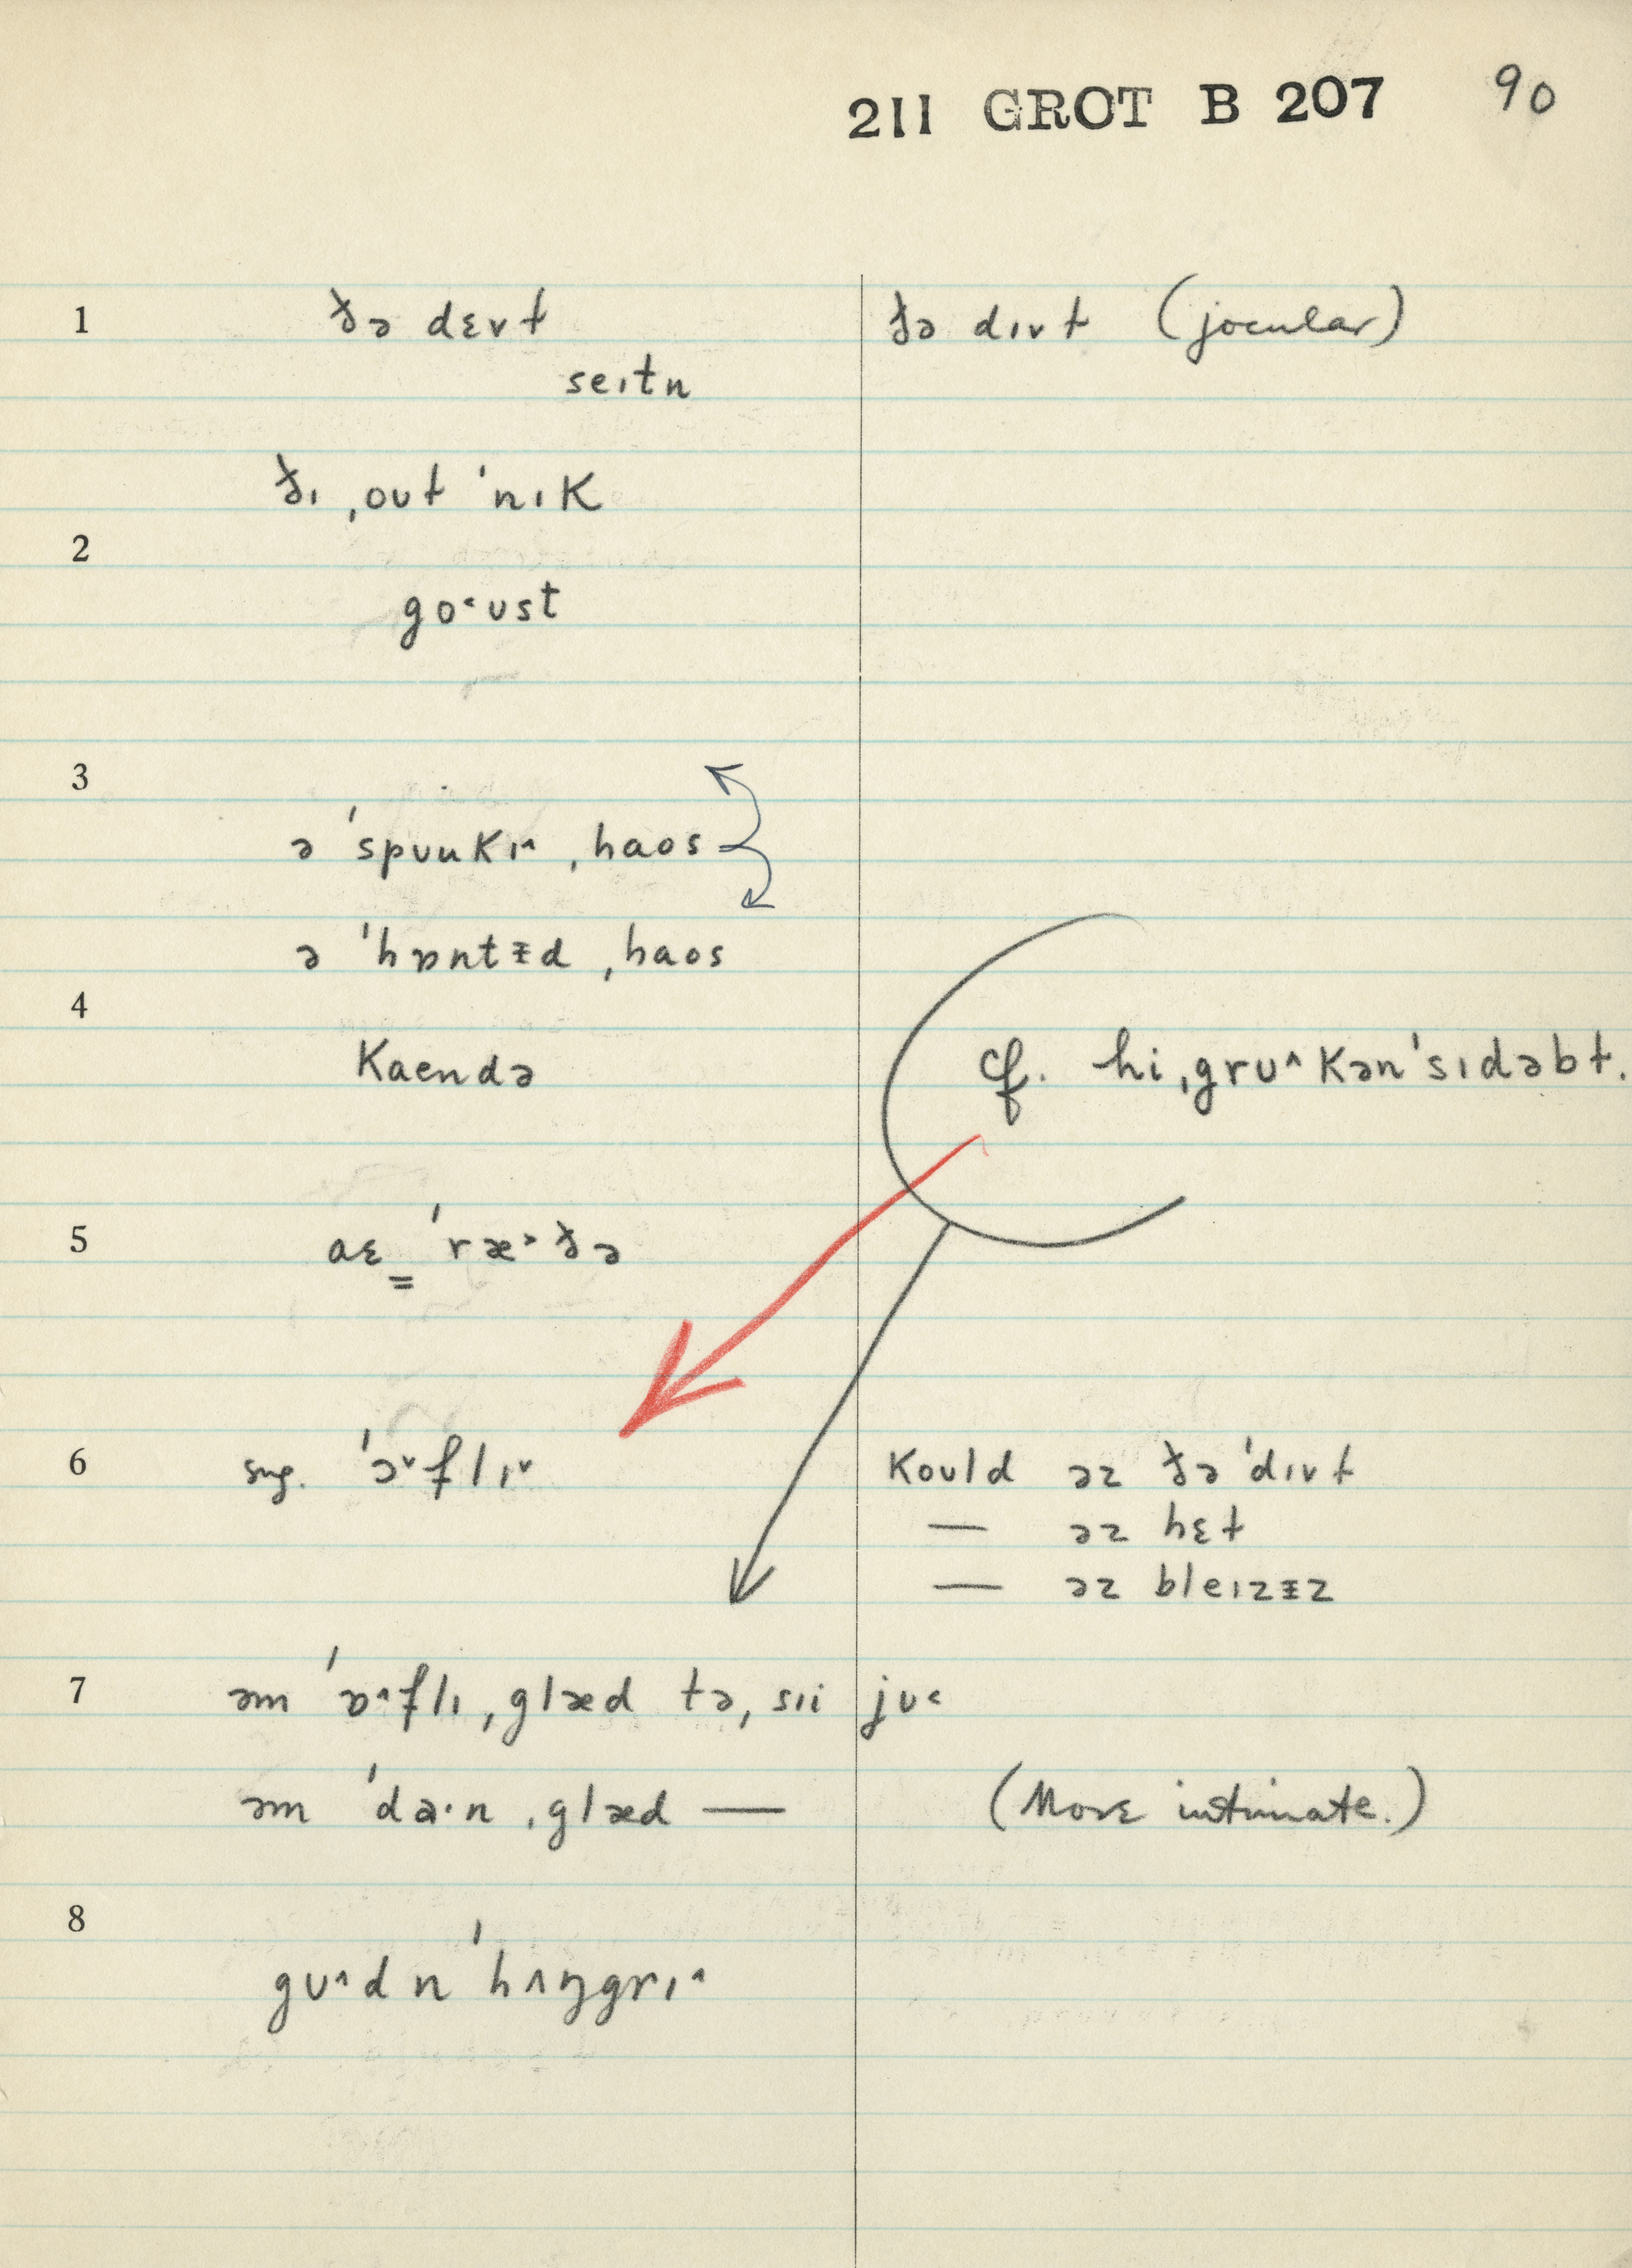 211 GROT B 207 90
1 ðə dɛvɫ ðə dɪvɫ (jocular)
seɪtn
ðɪ ˌouɫ ˈnɪK
2
go˂ust
3
ə ˈspuuKɪ˄ ˌhaos
ə ˈhɒntɨd ˌhaos
4
Kaendə cf. hi ˌgru˄ Kənˈsɪdəbɫ.
5 aɛ ˈræ˃ðə
6 sug. ˈɔ˅flɪ˅ Kould əz ðə ˈdɪvɫ
— əz hɛɫ
— əz bleɪzɨz
7 əm ˈɒ˄flɪ ˌglæd tə ˌsɪi ju˂
əm ˈda·n ˌglæd — (More intimate.)
8
gu˄d n ˈhʌŋgrɪ˄